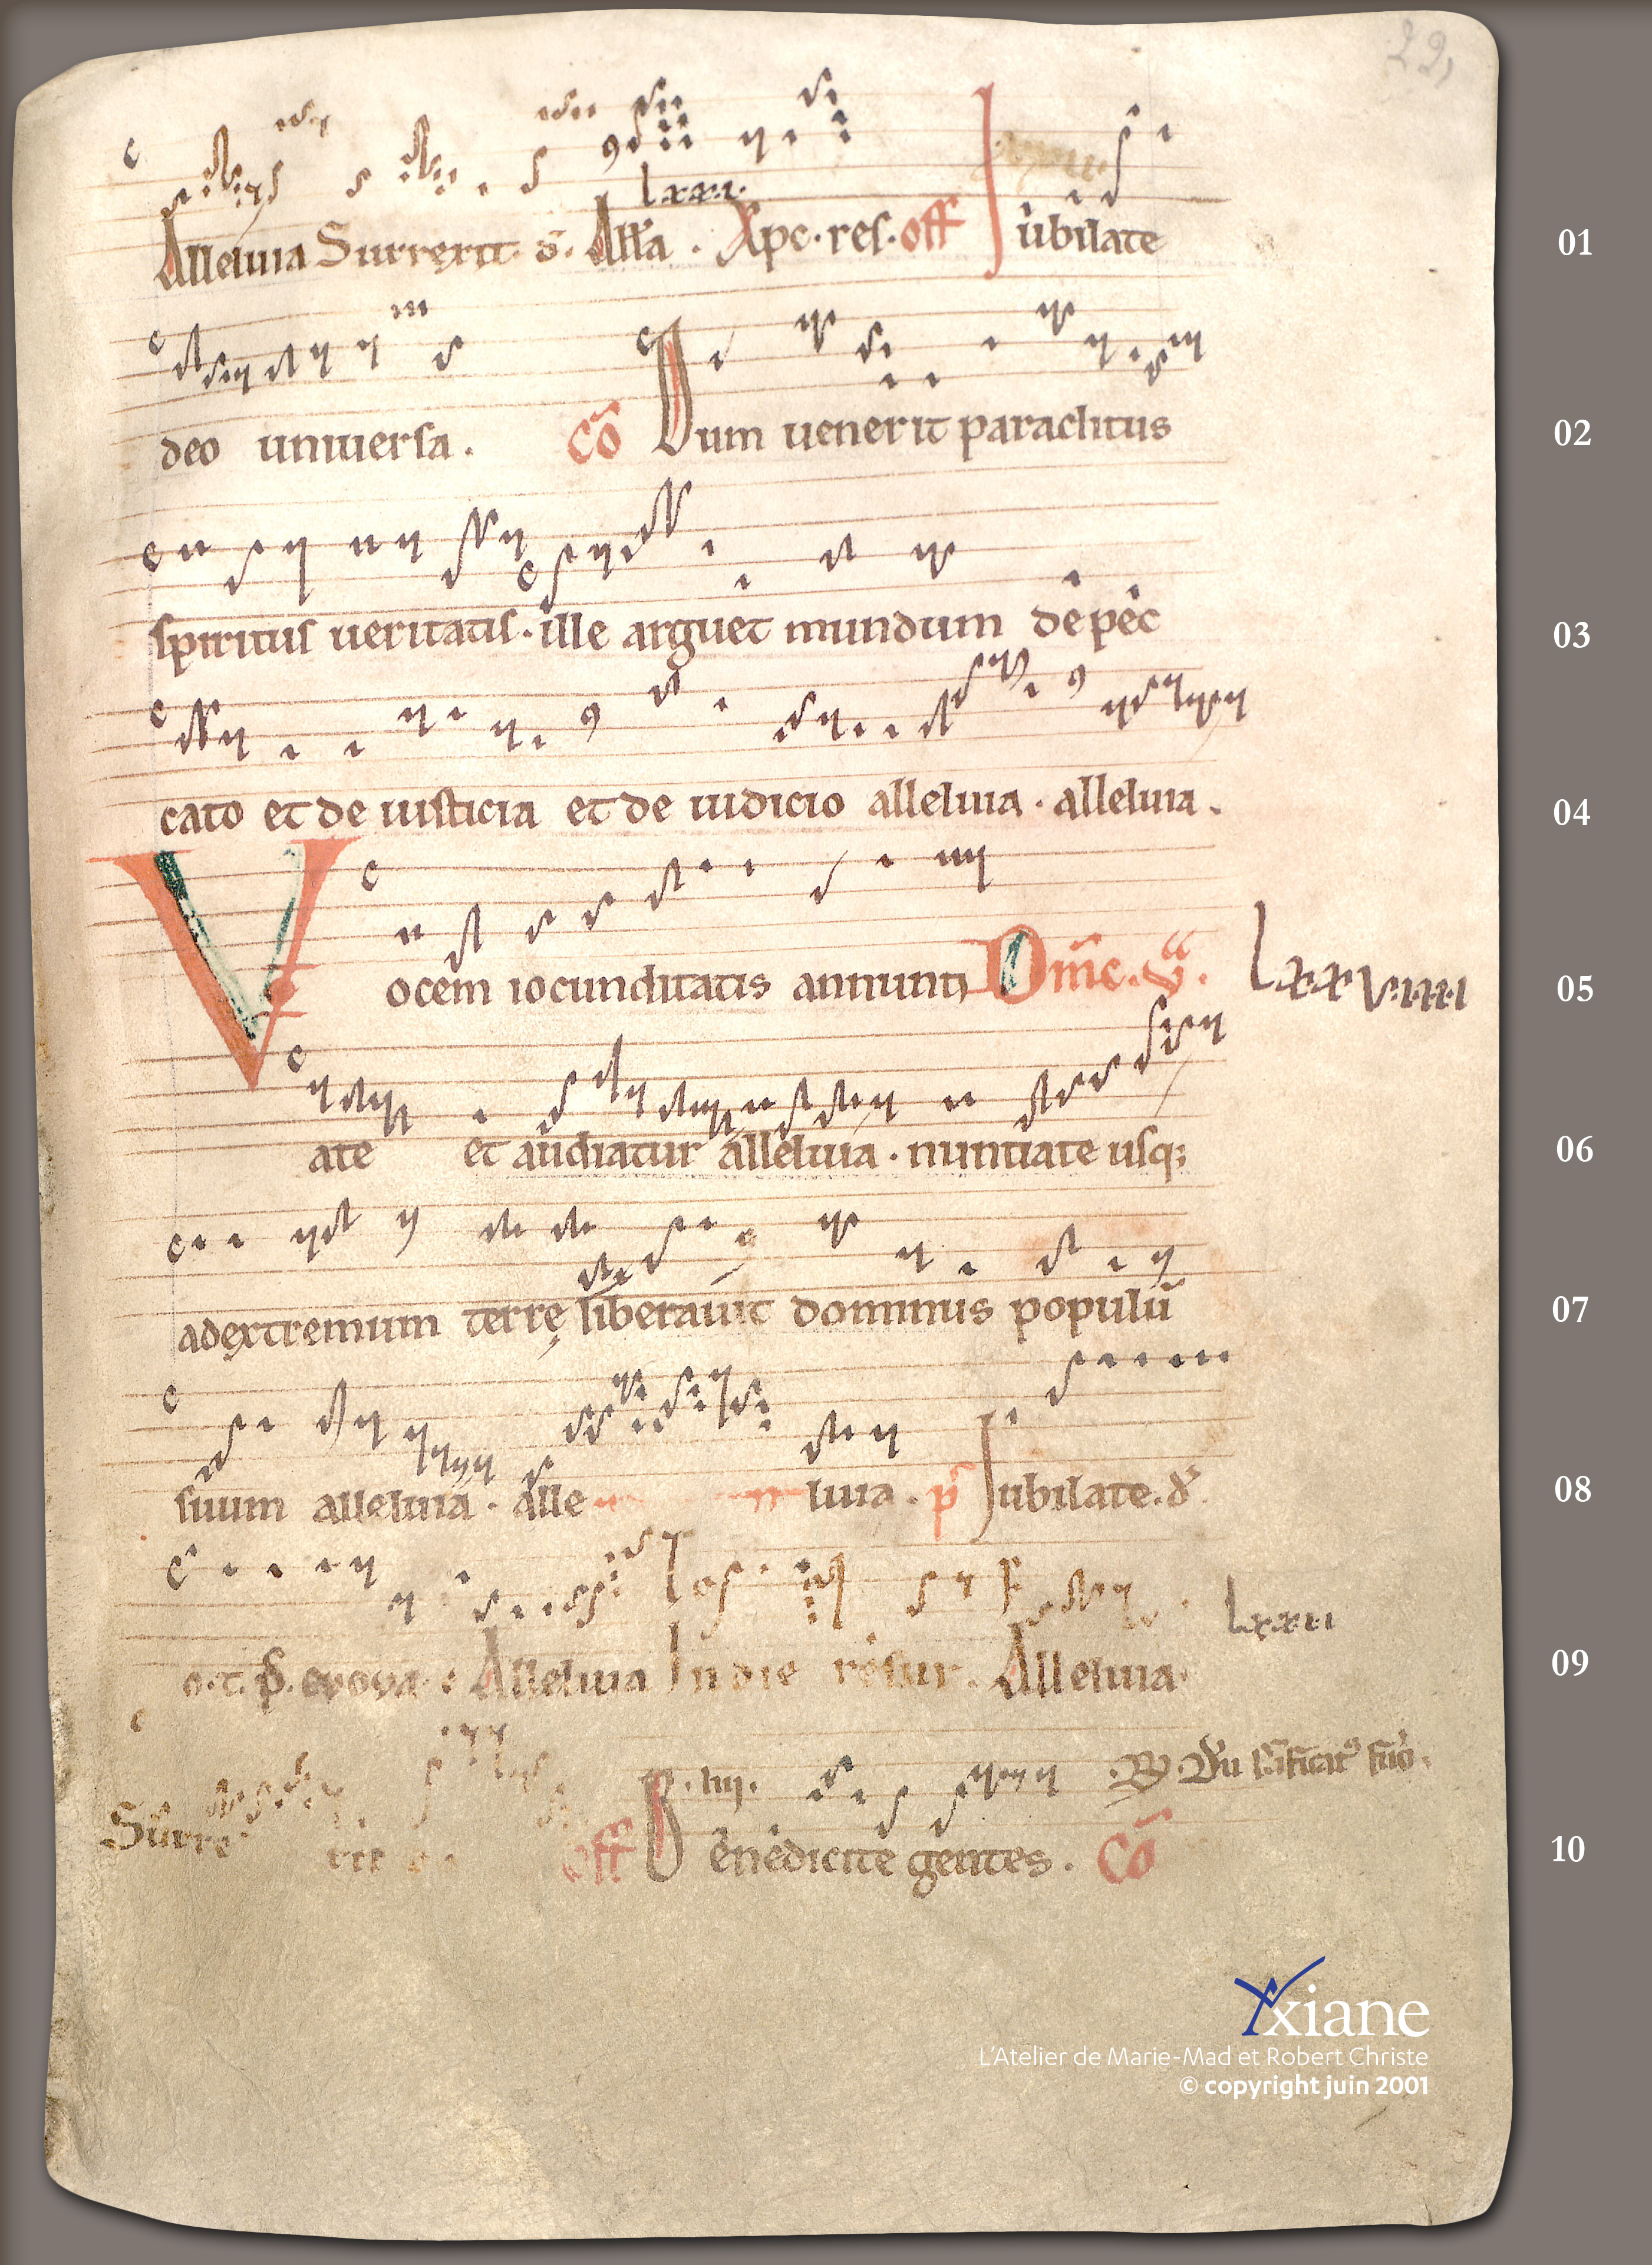 22,
lxxi.
Alleluia Surrexit. d. All'a . Xpc. res. off Iubilate
01
deo uniuersa. Cō Dum uenerit paraclitus
02
spiritus ueritatis. ille arguet mundum de pec
03
cato et de iusticia et de iudicio alleluia . alleluia .
04
Vocem iocunditatis annunti Dñic. V.
lxxviiii
05
ate et audiatur alleluia . nuntiate usq;
06
ad extremum terrę liberauit dominus populū
07
suum alleluia . alle luia . p̄ Iubilate. d̄.
08
lxxii
o. t. p̄. evova. Alleluia In die resur. Alleluia.
09
Surre xit off B. iiii. Benedicite gentes. Cō
10
Yxiane
L'Atelier de Marie-Mad et Robert Christe
© copyright juin 2001